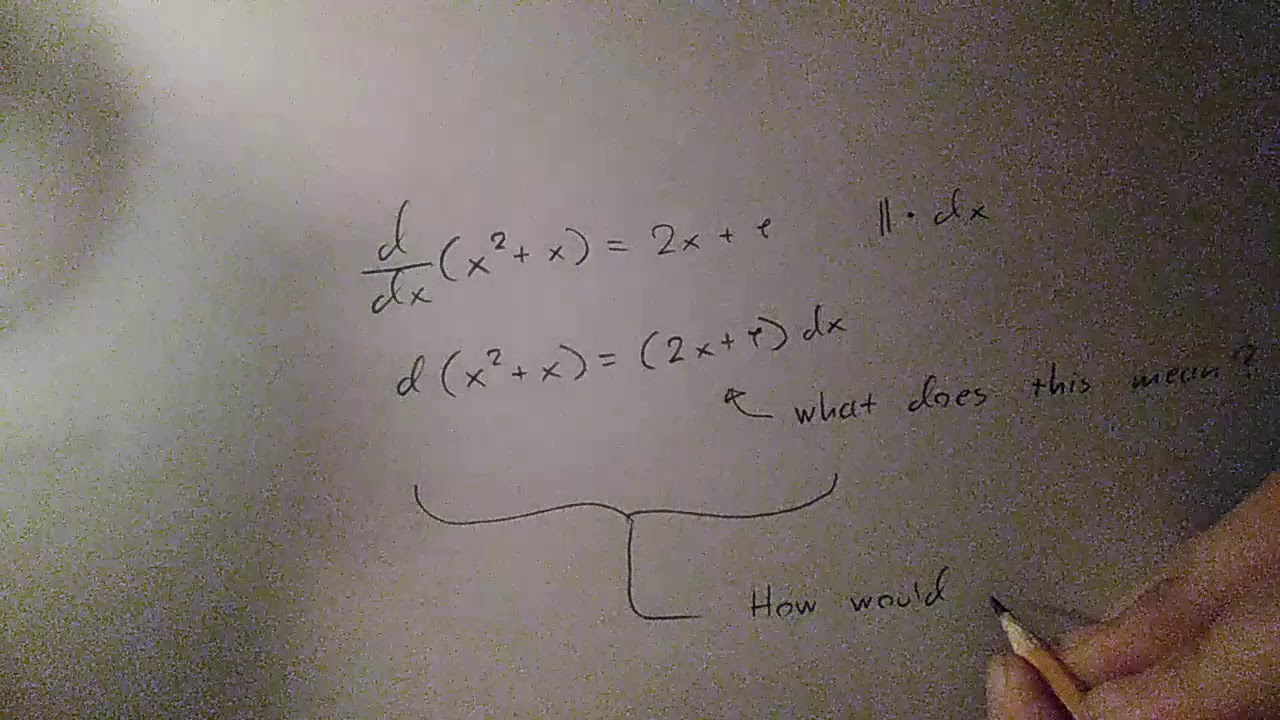 d/dx (x² + x) = 2x + 1 || · dx
d (x² + x) = (2x + 1) dx
what does this mean?
How would